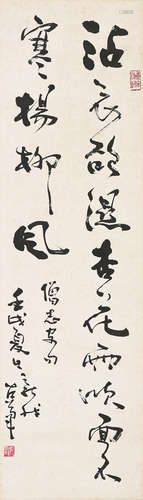 沾衣欲濕杏花雨吹面不
寒楊柳風
僧志安句
壬戌夏日